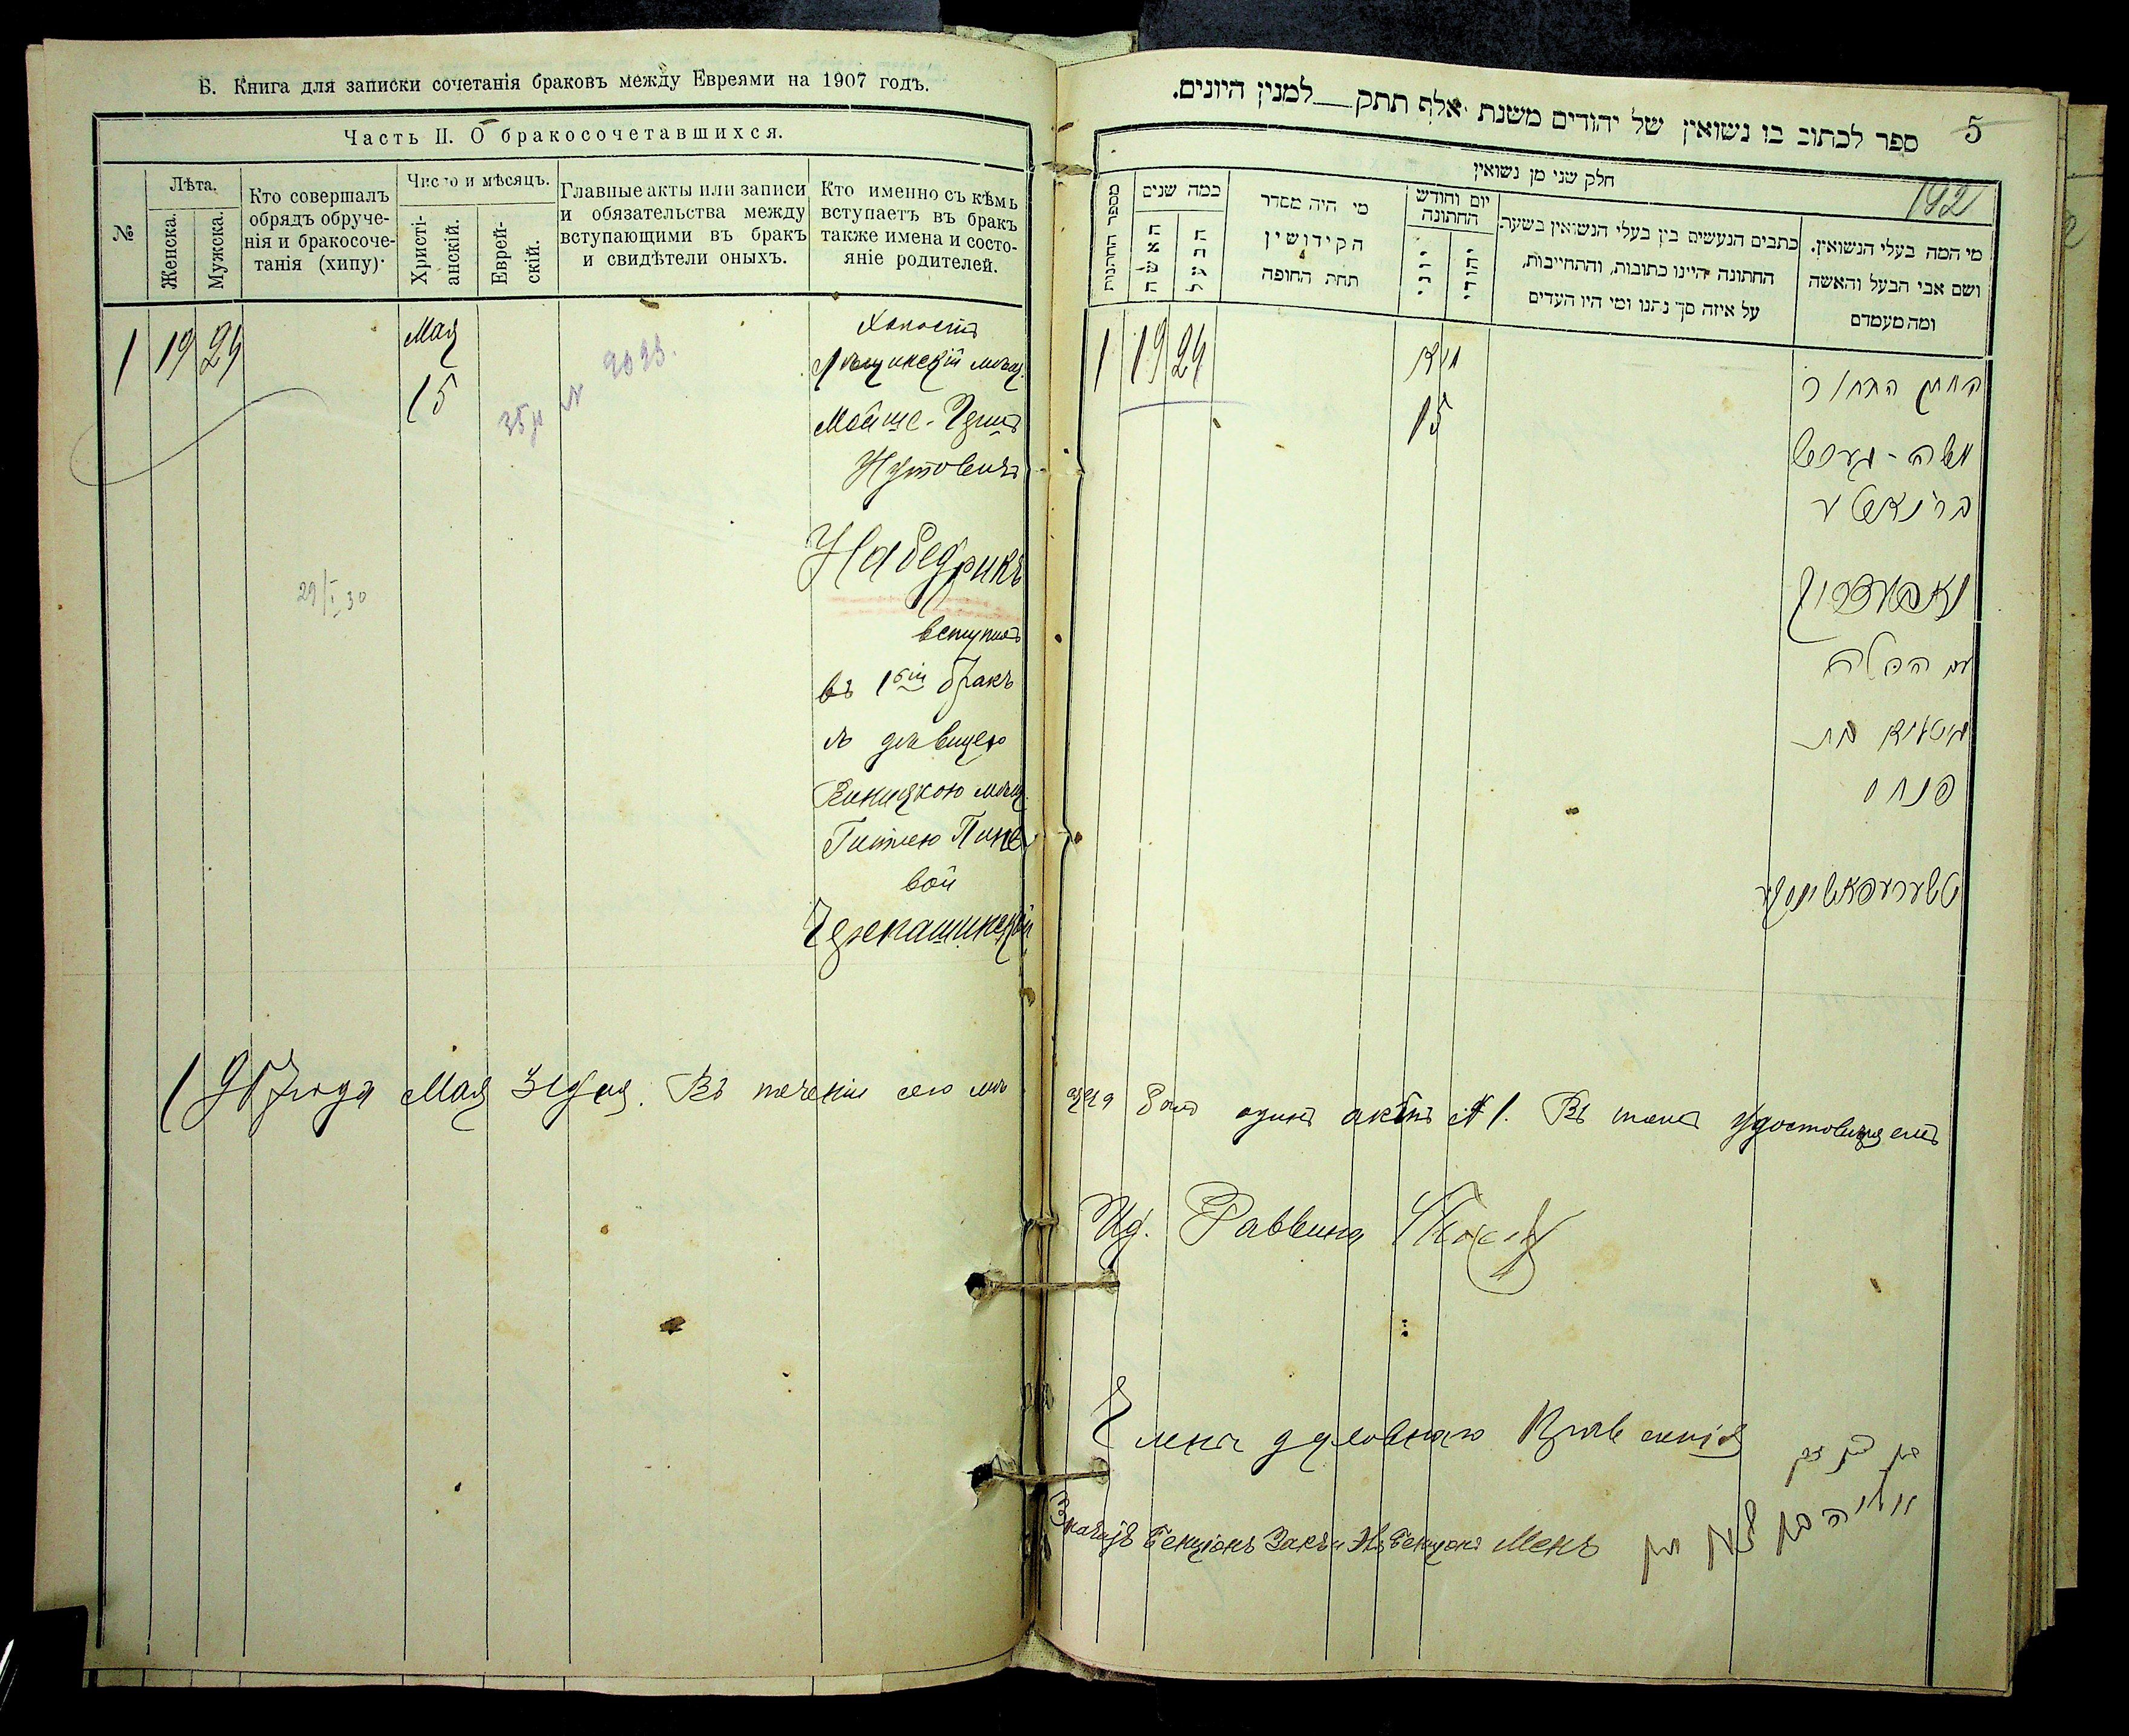 Б. Книга для записки сочетанія браковъ между Евреями на 1907 годъ.
Часть II. О бракосочетавшихся.
№
Лѣта.
Женска.
Мужска.
Кто совершалъ
обрядъ обруче-
нія и бракосоче-
танія (хипу).
Число и мѣсяцъ.
Христі-
анскій.
Еврей-
скій.
Главные акты или записи
и обязательства между
вступающими въ бракъ
и свидѣтели оныхъ.
Кто именно съ кѣмъ
вступаетъ въ бракъ
также имена и состо-
яніе родителей.
1 19 24
Мая
15
35 №
2023.
29/I 30
Холостъ
мѣщ.
Мойше-Герш
Нутовичъ
Набедрикъ
вступилъ
въ 1ый бракъ
съ дѣвицею
Виницкою мѣщ.
Гитлею Пинсе
вой
Черепашинской
1907 года Мая 31 дня. Въ теченіи сего мѣ
5
192
ספר לכתוב בו נשואין של יהודים משנת אלף תתק__למנין היונים.
חלק שני מן נשואין
מספר החתונות
כמה שנים
האשה
הבעל
מי היה מסדר
הקידושין
תחת החופה
יום וחודש
החתונה
יוני
יהודי
כתבים הנעשים בין בעלי הנשואין בשעת
החתונה היינו כתובות, והתחייבות,
על איזה סך נתנו ומי היו העדים
מי המה בעלי הנשואין.
ושם אבי הבעל והאשה
ומה מעמדם
1 19 24
מאי
15
הבחור
משה-הערש
נאבעדריק
עם הכלה
גיטליא בת
פנחס
טשערעפאשינסקי
сяца былъ одинъ актъ № 1. Въ томъ удостовѣряемъ
Ид. Раввина
Члены духовнаго Правленія
Казначей Бенціонъ Закъ и Бенціонъ Менъ